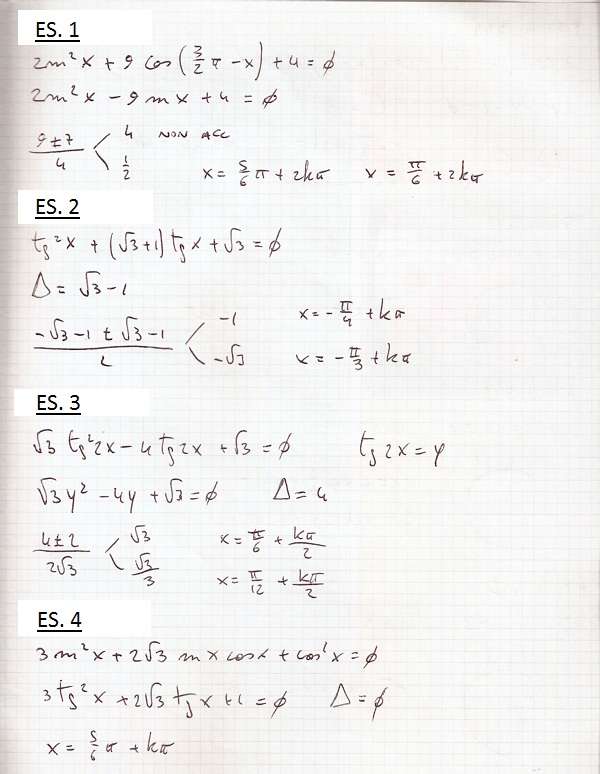 ES. 1
2 sin²x + 9 cos(3/2 π - x) + 4 = ϕ
2 sin²x - 9 sin x + 4 = ϕ
(9 ± 7)/4 < 4 NON ACC
1/2 x = 5/6 π + 2kπ x = π/6 + 2kπ
ES. 2
tg²x + (√3+1) tg x + √3 = ϕ
Δ = √3 - 1
(-√3 - 1 ± √3 - 1)/2 < -1 x = - π/4 + kπ
-√3 x = - π/3 + kπ
ES. 3
√3 tg²2x - 4 tg 2x + √3 = ϕ tg 2x = y
√3 y² - 4y + √3 = ϕ Δ = 4
(4 ± 2)/(2√3) < √3 x = π/6 + kπ/2
√3/3 x = π/12 + kπ/2
ES. 4
3 sin²x + 2√3 sin x cos x + cos²x = ϕ
3 tg²x + 2√3 tg x + 1 = ϕ Δ = ϕ
x = 5/6 π + kπ